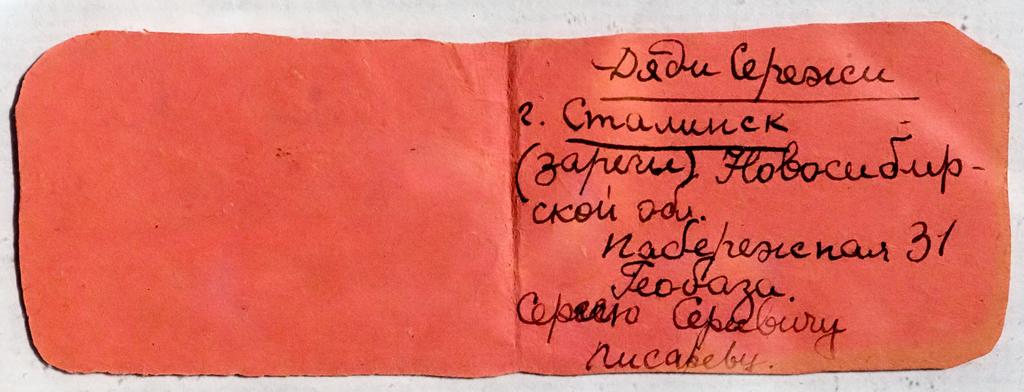 Дяди Сережи
г. Сталинск
(заречи) Новосибир-
ской обл.
Набережная 31
Геобаза.
Сергею Сергевичу
Писареву.